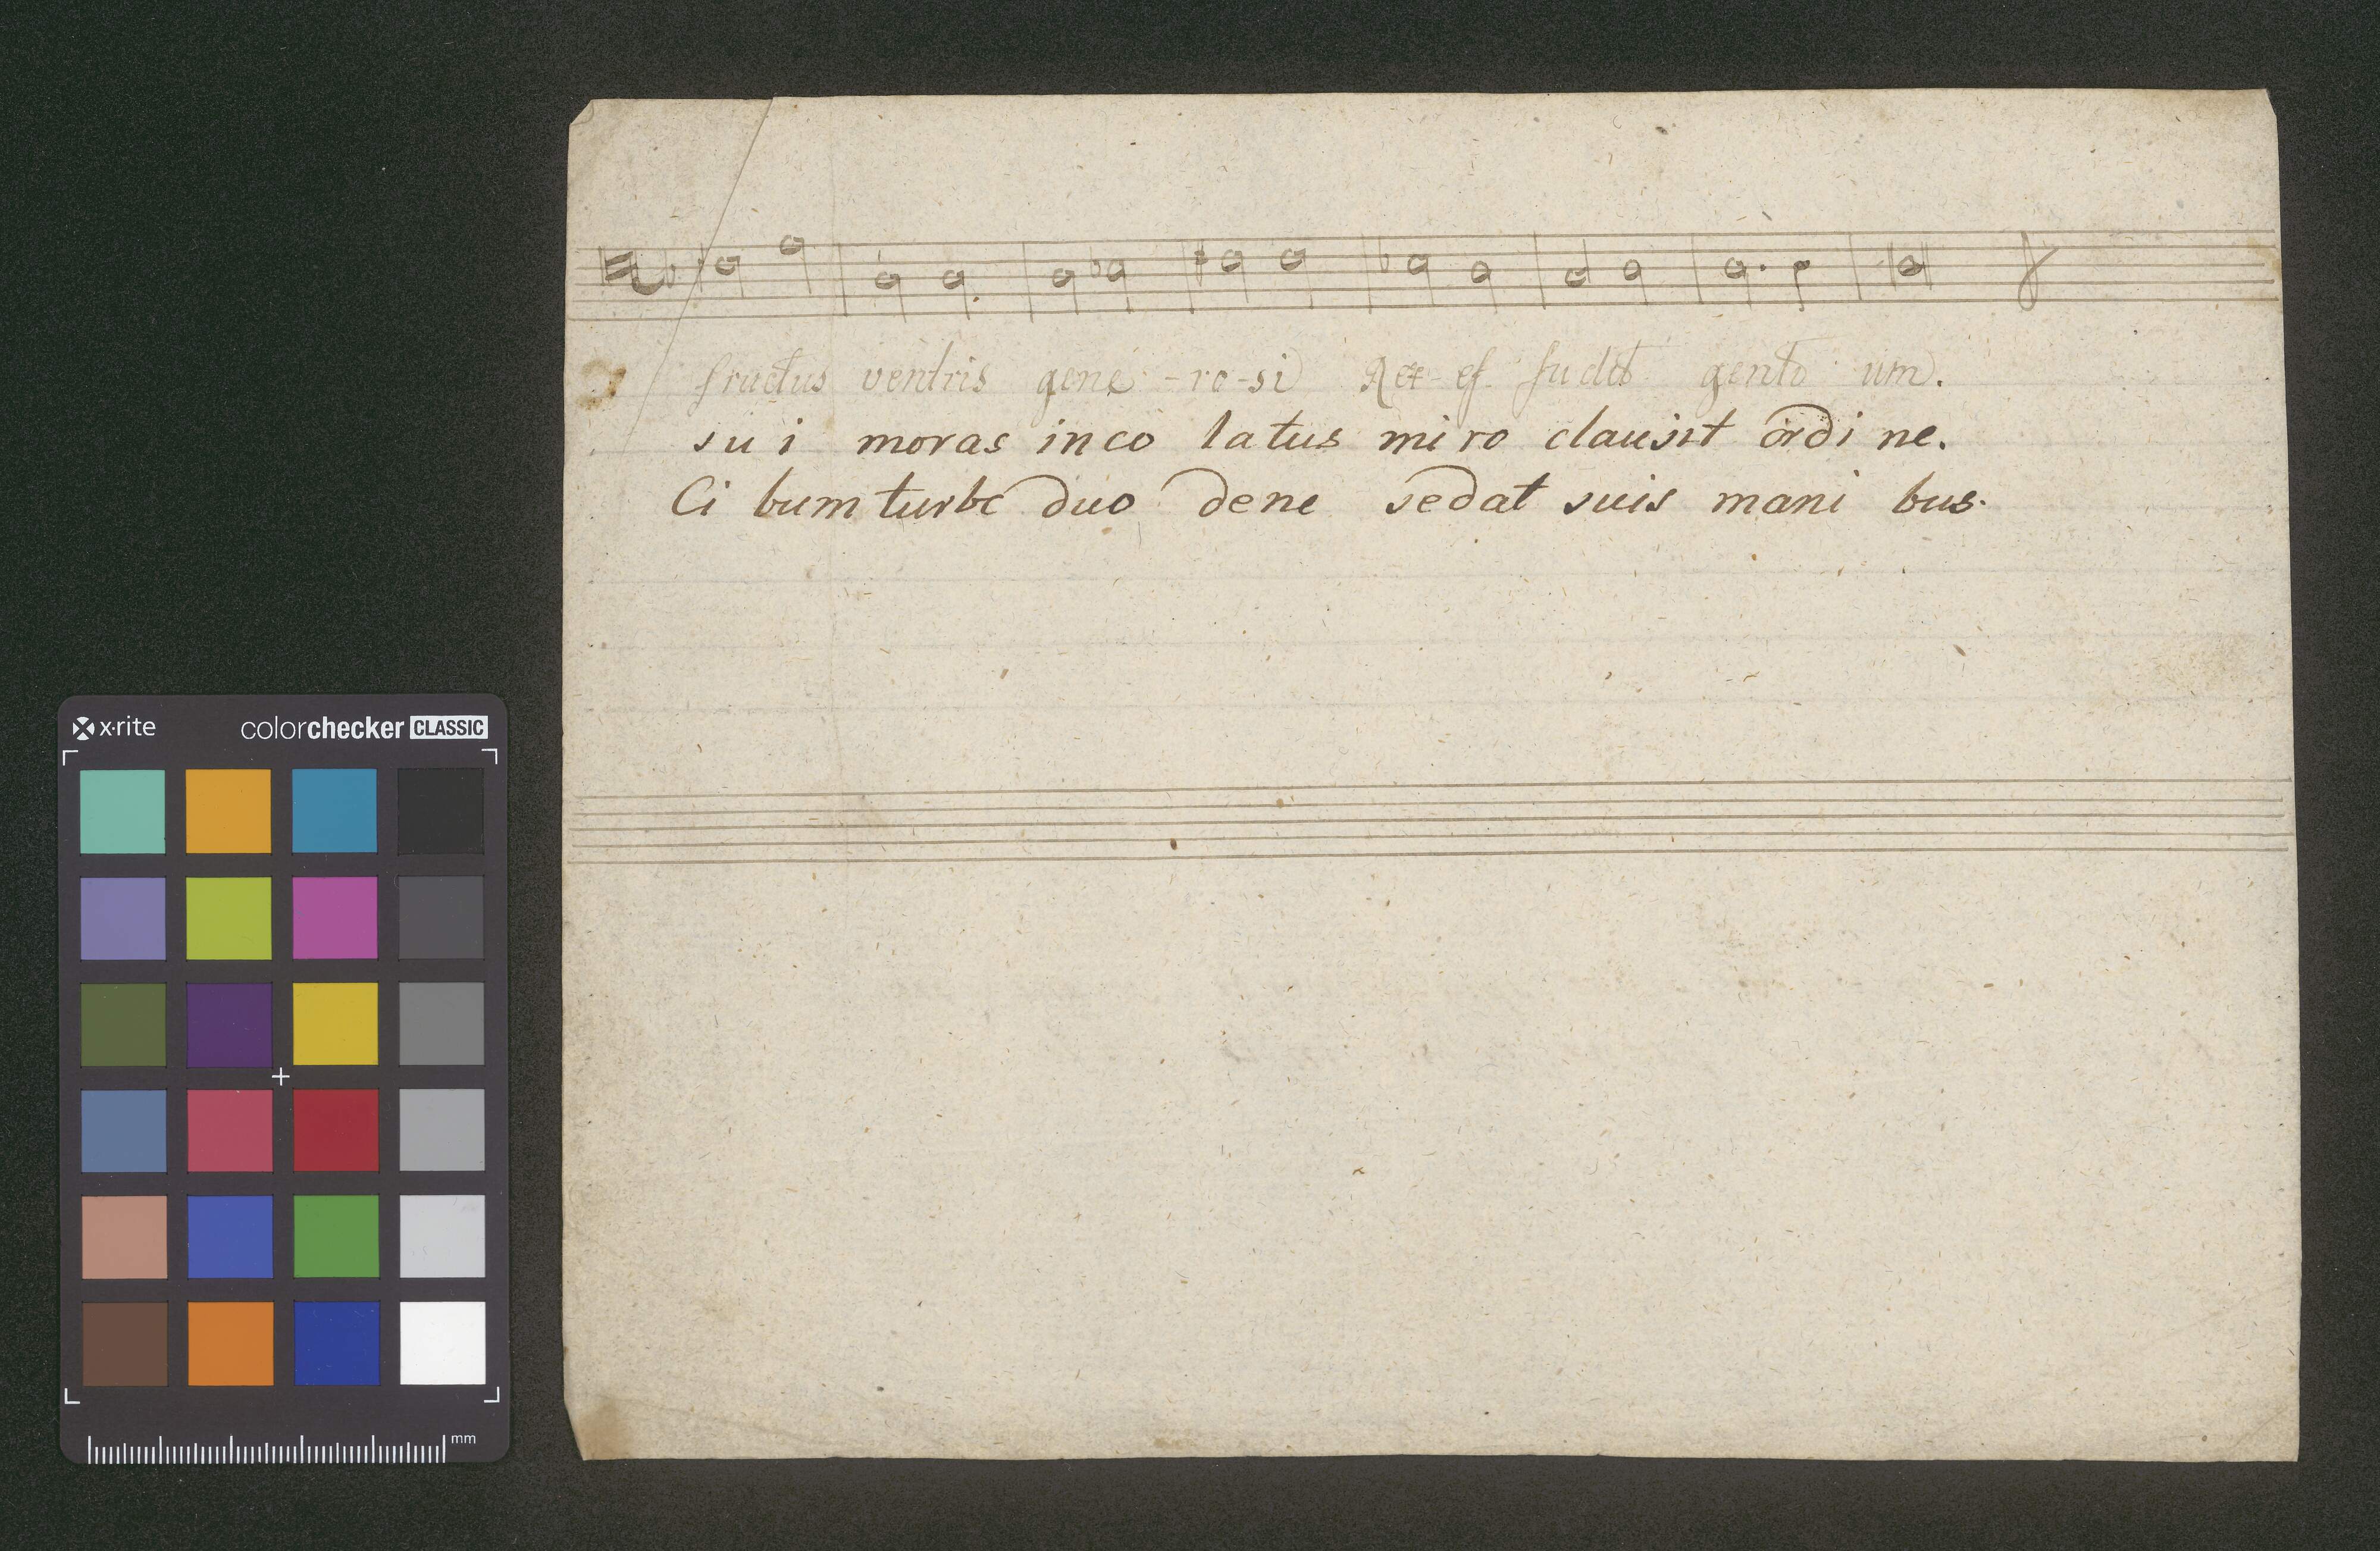 fructus ventris gene - ro - si Rex ef fudit genti um.
su i moras inco latus mi ro clausit ordi ne.
Ci bum turbe duo dene se dat suis mani bus.
x·rite colorchecker CLASSIC
mm